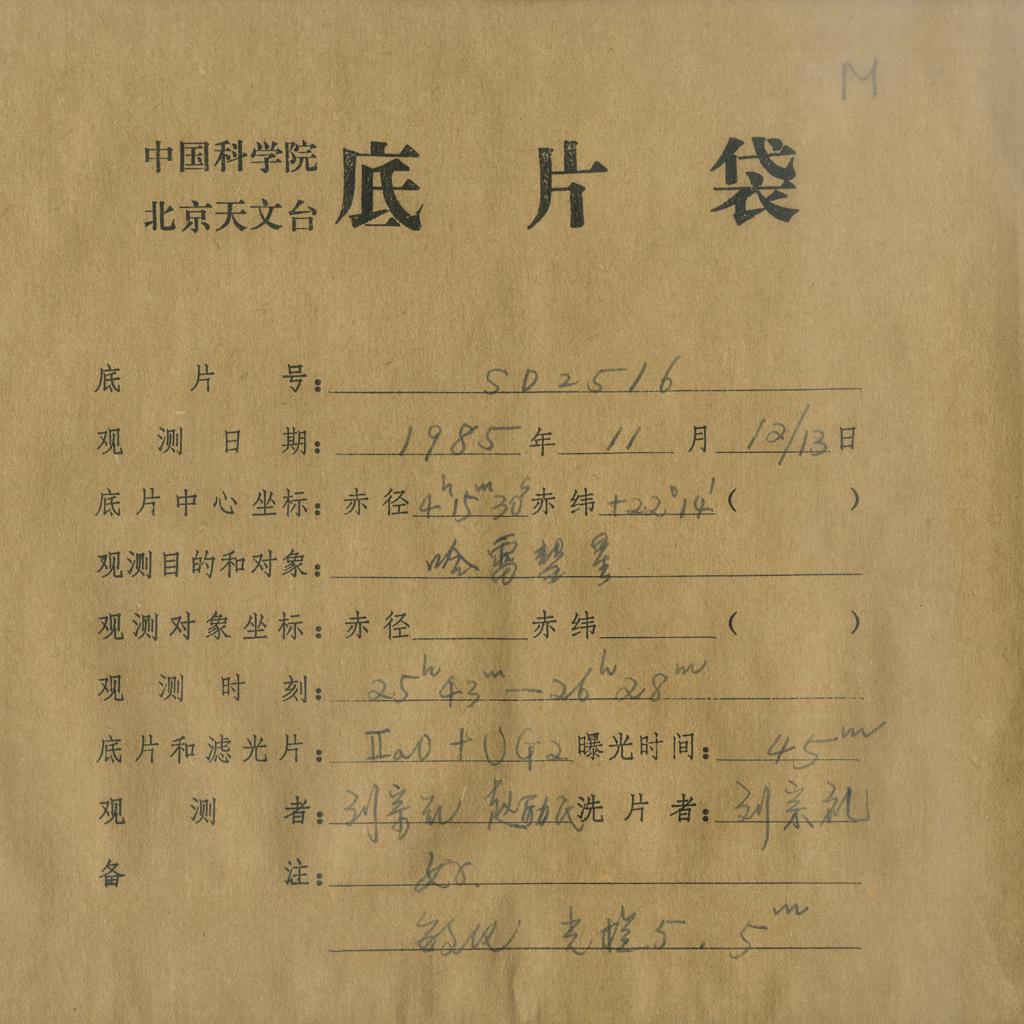 M
中国科学院
北京天文台
底片袋
底片号：SD2516
观测日期：1985年11月12/13日
底片中心坐标：赤径4h15m30s赤纬+22°14′（ ）
观测目的和对象：哈雷彗星
观测对象坐标：赤径 赤纬 （ ）
观测时刻：25h43m—26h28m
底片和滤光片：ⅡaO+UG2 曝光时间：45m
观测者：刘宗礼 赵勋民 洗片者：刘宗礼
备注：好.
敏化 光楔5.5m